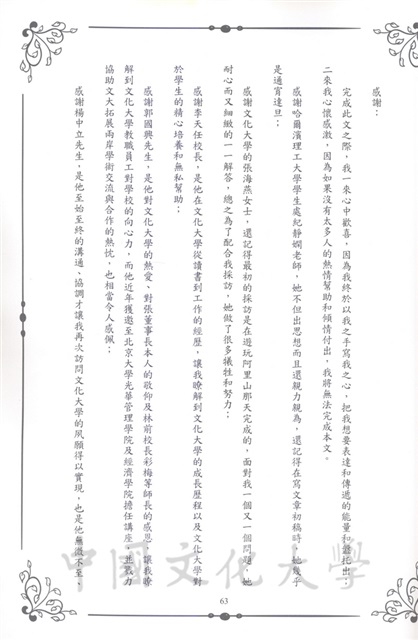 感謝：
完成此文之際，我一來心中歡喜，因為我終於以我之手寫我之心，把我想要表達和傳遞的能量和盤托出；
二來我心懷感激，因為如果沒有太多人的熱情幫助和傾情付出，我將無法完成本文。
感謝哈爾濱理工大學學生處紀靜嫻老師，她不但出思想而且還親力親為，還記得在寫文章初稿時，她幾乎
是通宵達旦；
感謝文化大學的張海燕女士，還記得最初的採訪是在遊玩阿里山那天完成的，面對我一個又一個問題，她
耐心而又細緻的一一解答，總之為了配合我採訪，她做了很多犧牲和努力；
感謝李天任校長，是他在文化大學從讀書到工作的經歷，讓我瞭解到文化大學的成長歷程以及文化大學對
於學生的精心培養和無私幫助；
感謝郭國興先生，是他對文化大學的熱愛、對張董事長本人的敬仰及林前校長彩梅等師長的感恩，讓我瞭
解到文化大學教職員工對學校的向心力，而他近年獲邀至北京大學光華管理學院及經濟學院擔任講座，並戮力
協助文大拓展兩岸學術交流與合作的熱忱，也相當令人感佩；
感謝楊中立先生，是他至始至終的溝通、協調才讓我再次訪問文化大學的夙願得以實現，也是他無微不至、
中國文化大學
63